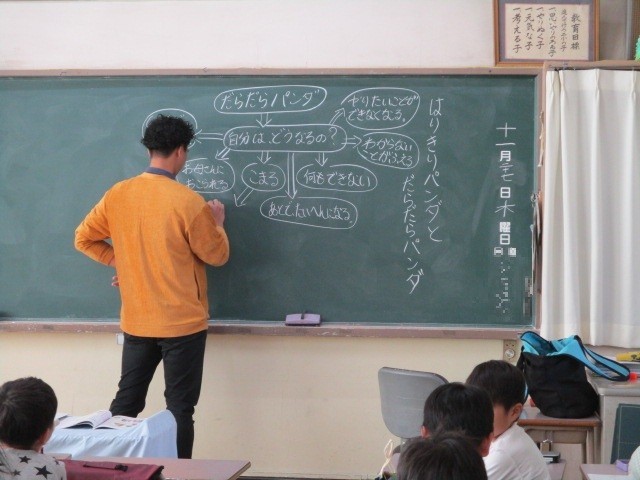 教育目標
一思いやりのある子
一やりぬく子
一元気な子
一考える子
十一月二七日木曜日
はりきりパンダと
だらだらパンダ
だらだらパンダ
自分は、どうなるの?
やりたいことが
できなくなる。
わからない
ことがふえる
お母さんに
おこられる
こまる
何もできない
あとでたいへんになる